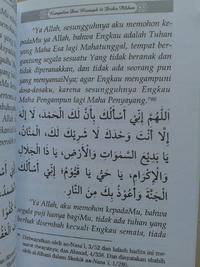 Kumpulan Doa Mustajab & Dzikir Pilihan
"Ya Allah, sesungguhnya aku memohon ke-
padaMu ya Allah, bahwa Engkau adalah Tuhan
Yang Maha Esa lagi Mahatunggal, tempat ber-
gantung segala sesuatu Yang tidak beranak dan
tidak diperanakkan, dan tidak ada seorang pun
yang menyamaiNya; agar Engkau mengampuni
dosa-dosaku, karena sesungguhnya Engkau
Maha Pengampun lagi Maha Penyayang."
اَللّٰهُمَّ إِنِّي أَسْأَلُكَ بِأَنَّ لَكَ الْحَمْدَ، لَا إِلٰهَ
إِلَّا أَنْتَ وَحْدَكَ لَا شَرِيْكَ لَكَ، الْمَنَّانُ،
يَا بَدِيْعَ السَّمٰوَاتِ وَالْأَرْضِ، يَا ذَا الْجَلَالِ
وَالْإِكْرَامِ، يَا حَيُّ يَا قَيُّوْمُ، إِنِّي أَسْأَلُكَ
الْجَنَّةَ وَأَعُوْذُ بِكَ مِنَ النَّارِ.
"Ya Allah, aku memohon kepadaMu, bahwa
segala puji hanya bagiMu, tidak ada tuhan yang
berhak disembah kecuali Engkau semata, tiada
Diriwayatkan oleh an-Nasa`i, 3/52 dan lafazh hadits ini me-
rupakan riwayatnya; dan Ahmad, 4/338. Dan dinyatakan shahih
oleh al-Albani dalam Shahih an-Nasa`i, 1/280.